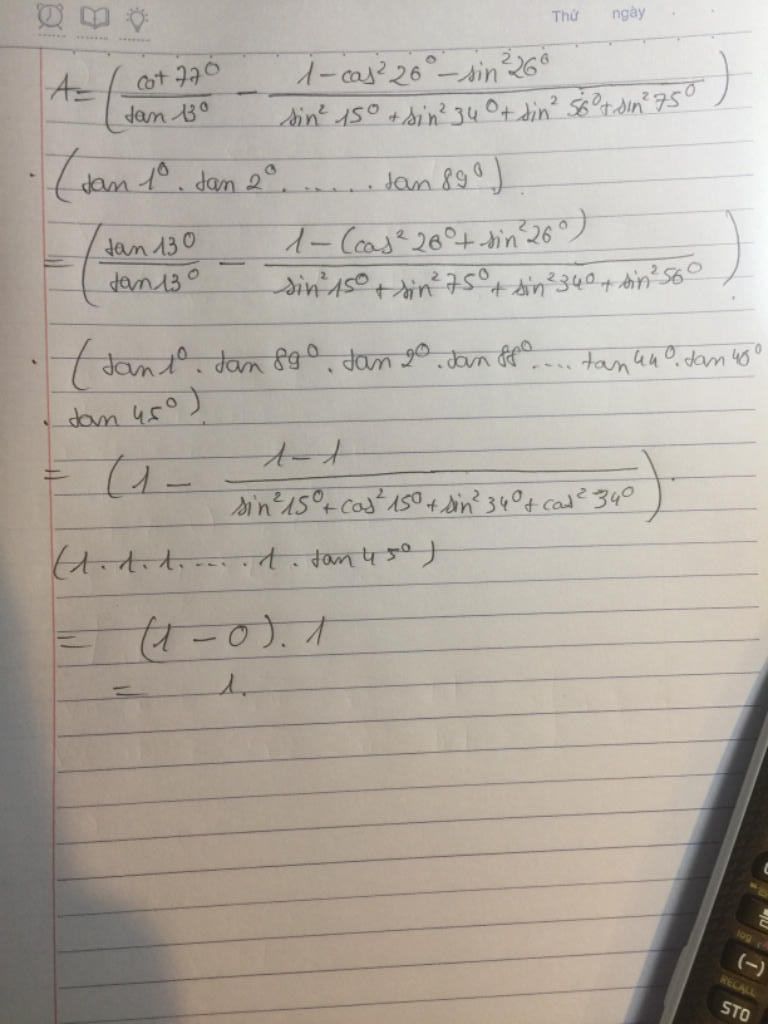 Thứ ngày
A = ( cot 77° / tan 13° − 1 − cos² 26° − sin² 26° / sin² 15° + sin² 34° + sin² 56° + sin² 75° )
. ( tan 1° . tan 2° . ..... . tan 89° )
= ( tan 13° / tan 13° − 1 − (cos² 26° + sin² 26°) / sin² 15° + sin² 75° + sin² 34° + sin² 56° ) .
. ( tan 1° . tan 89° . tan 2° . tan 88° .... tan 44° . tan 46°
. tan 45° ).
= ( 1 − 1 − 1 / sin² 15° + cos² 15° + sin² 34° + cos² 34° ) .
(1 . 1 . 1 . .... . 1 . tan 45°)
= (1 − 0) . 1
= 1.
log
(−)
RECALL
STO